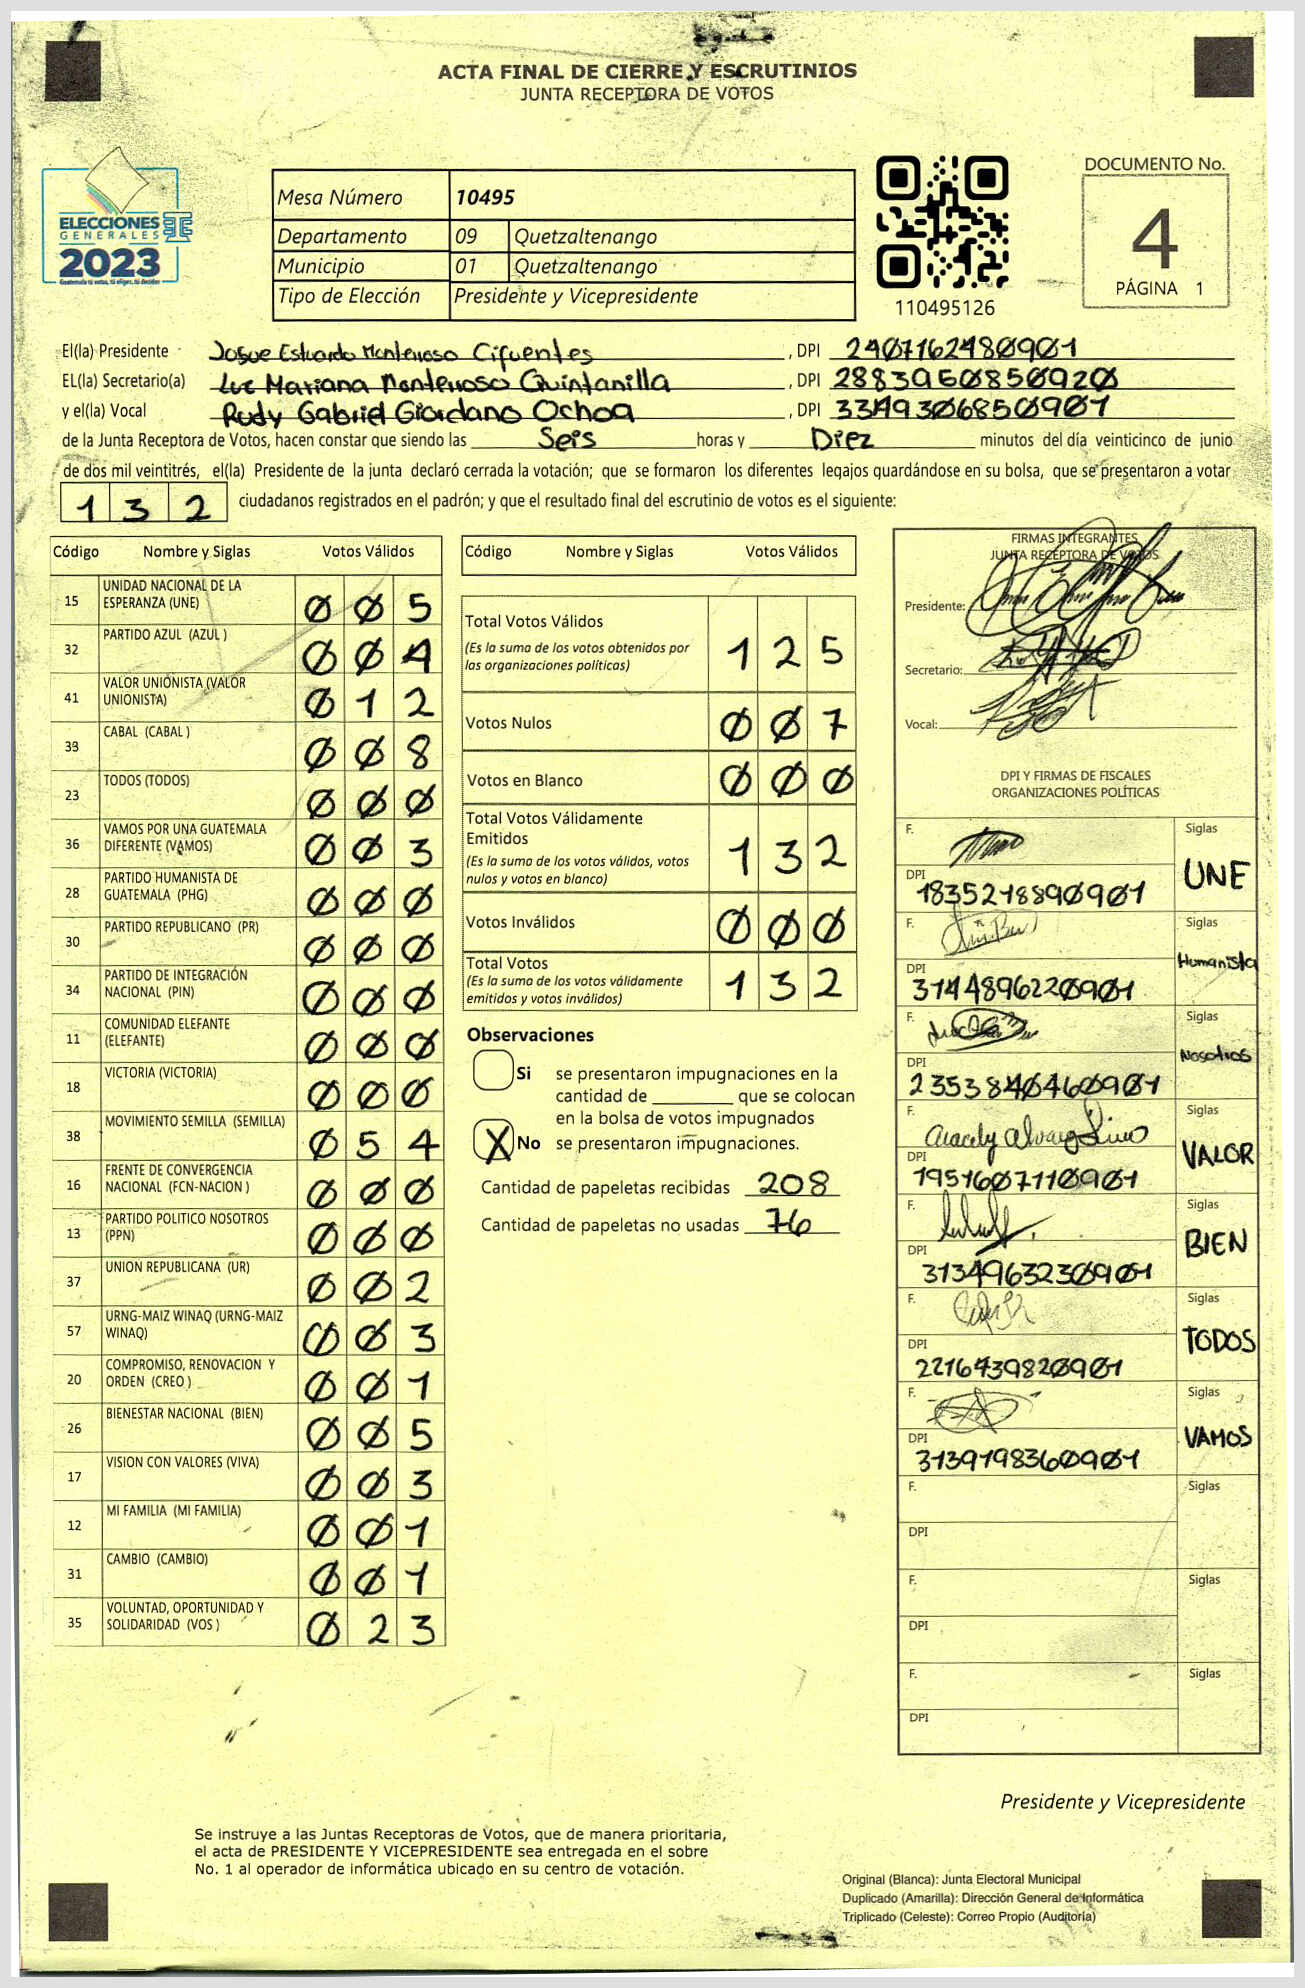 ACTA FINAL DE CIERRE Y ESCRUTINIOS
JUNTA RECEPTORA DE VOTOS
ELECCIONES
GENERALES
2023
Guatemala tú votas, tú eliges, tú decides
Mesa Número 10495
Departamento 09 Quetzaltenango
Municipio 01 Quetzaltenango
Tipo de Elección Presidente y Vicepresidente
110495126
DOCUMENTO No.
4
PÁGINA 1
El(la) Presidente Josue Estuardo Monterroso Cifuentes, DPI 2407162480901
EL(la) Secretario(a) Luz Mariana Monterroso Quintanilla, DPI 2883950850920
y el(la) Vocal Rudy Gabriel Giordano Ochoa, DPI 3349306850901
de la Junta Receptora de Votos, hacen constar que siendo las Seis horas y Diez minutos del día veinticinco de junio
de dos mil veintitrés, el(la) Presidente de la junta declaró cerrada la votación; que se formaron los diferentes legajos guardándose en su bolsa, que se presentaron a votar
132 ciudadanos registrados en el padrón; y que el resultado final del escrutinio de votos es el siguiente:
Código Nombre y Siglas Votos Válidos
15 UNIDAD NACIONAL DE LA ESPERANZA (UNE) 005
32 PARTIDO AZUL (AZUL ) 004
41 VALOR UNIONISTA (VALOR UNIONISTA) 012
39 CABAL (CABAL ) 008
23 TODOS (TODOS) 000
36 VAMOS POR UNA GUATEMALA DIFERENTE (VAMOS) 003
28 PARTIDO HUMANISTA DE GUATEMALA (PHG) 000
30 PARTIDO REPUBLICANO (PR) 000
34 PARTIDO DE INTEGRACIÓN NACIONAL (PIN) 000
11 COMUNIDAD ELEFANTE (ELEFANTE) 000
18 VICTORIA (VICTORIA) 000
38 MOVIMIENTO SEMILLA (SEMILLA) 054
16 FRENTE DE CONVERGENCIA NACIONAL (FCN-NACION ) 000
13 PARTIDO POLITICO NOSOTROS (PPN) 000
37 UNION REPUBLICANA (UR) 002
57 URNG-MAIZ WINAQ (URNG-MAIZ WINAQ) 003
20 COMPROMISO, RENOVACION Y ORDEN (CREO ) 001
26 BIENESTAR NACIONAL (BIEN) 005
17 VISION CON VALORES (VIVA) 003
12 MI FAMILIA (MI FAMILIA) 001
31 CAMBIO (CAMBIO) 001
35 VOLUNTAD, OPORTUNIDAD Y SOLIDARIDAD (VOS ) 023
Código Nombre y Siglas Votos Válidos
Total Votos Válidos 125
(Es la suma de los votos obtenidos por
las organizaciones políticas)
Votos Nulos 007
Votos en Blanco 000
Total Votos Válidamente
Emitidos 132
(Es la suma de los votos válidos, votos
nulos y votos en blanco)
Votos Inválidos 000
Total Votos 132
(Es la suma de los votos válidamente
emitidos y votos inválidos)
Observaciones
Si se presentaron impugnaciones en la
cantidad de ________ que se colocan
en la bolsa de votos impugnados
X No se presentaron impugnaciones.
Cantidad de papeletas recibidas 208
Cantidad de papeletas no usadas 76
FIRMAS INTEGRANTES
JUNTA RECEPTORA DE VOTOS
Presidente:
Secretario:
Vocal:
DPI Y FIRMAS DE FISCALES
ORGANIZACIONES POLÍTICAS
F. Siglas UNE
DPI 1835218890901
F. Siglas Humanista
DPI 3144896220901
F. Siglas Nosotros
DPI 2353840460901
F. Aracely Siglas VALOR
DPI 1951607110901
F. Siglas BIEN
DPI 3134963230901
F. Siglas TODOS
DPI 2216439820901
F. Siglas VAMOS
DPI 3139198360901
F. Siglas
DPI
F. Siglas
DPI
F. Siglas
DPI
Presidente y Vicepresidente
Se instruye a las Juntas Receptoras de Votos, que de manera prioritaria,
el acta de PRESIDENTE Y VICEPRESIDENTE sea entregada en el sobre
No. 1 al operador de informática ubicado en su centro de votación.
Original (Blanca): Junta Electoral Municipal
Duplicado (Amarilla): Dirección General de Informática
Triplicado (Celeste): Correo Propio (Auditoría)